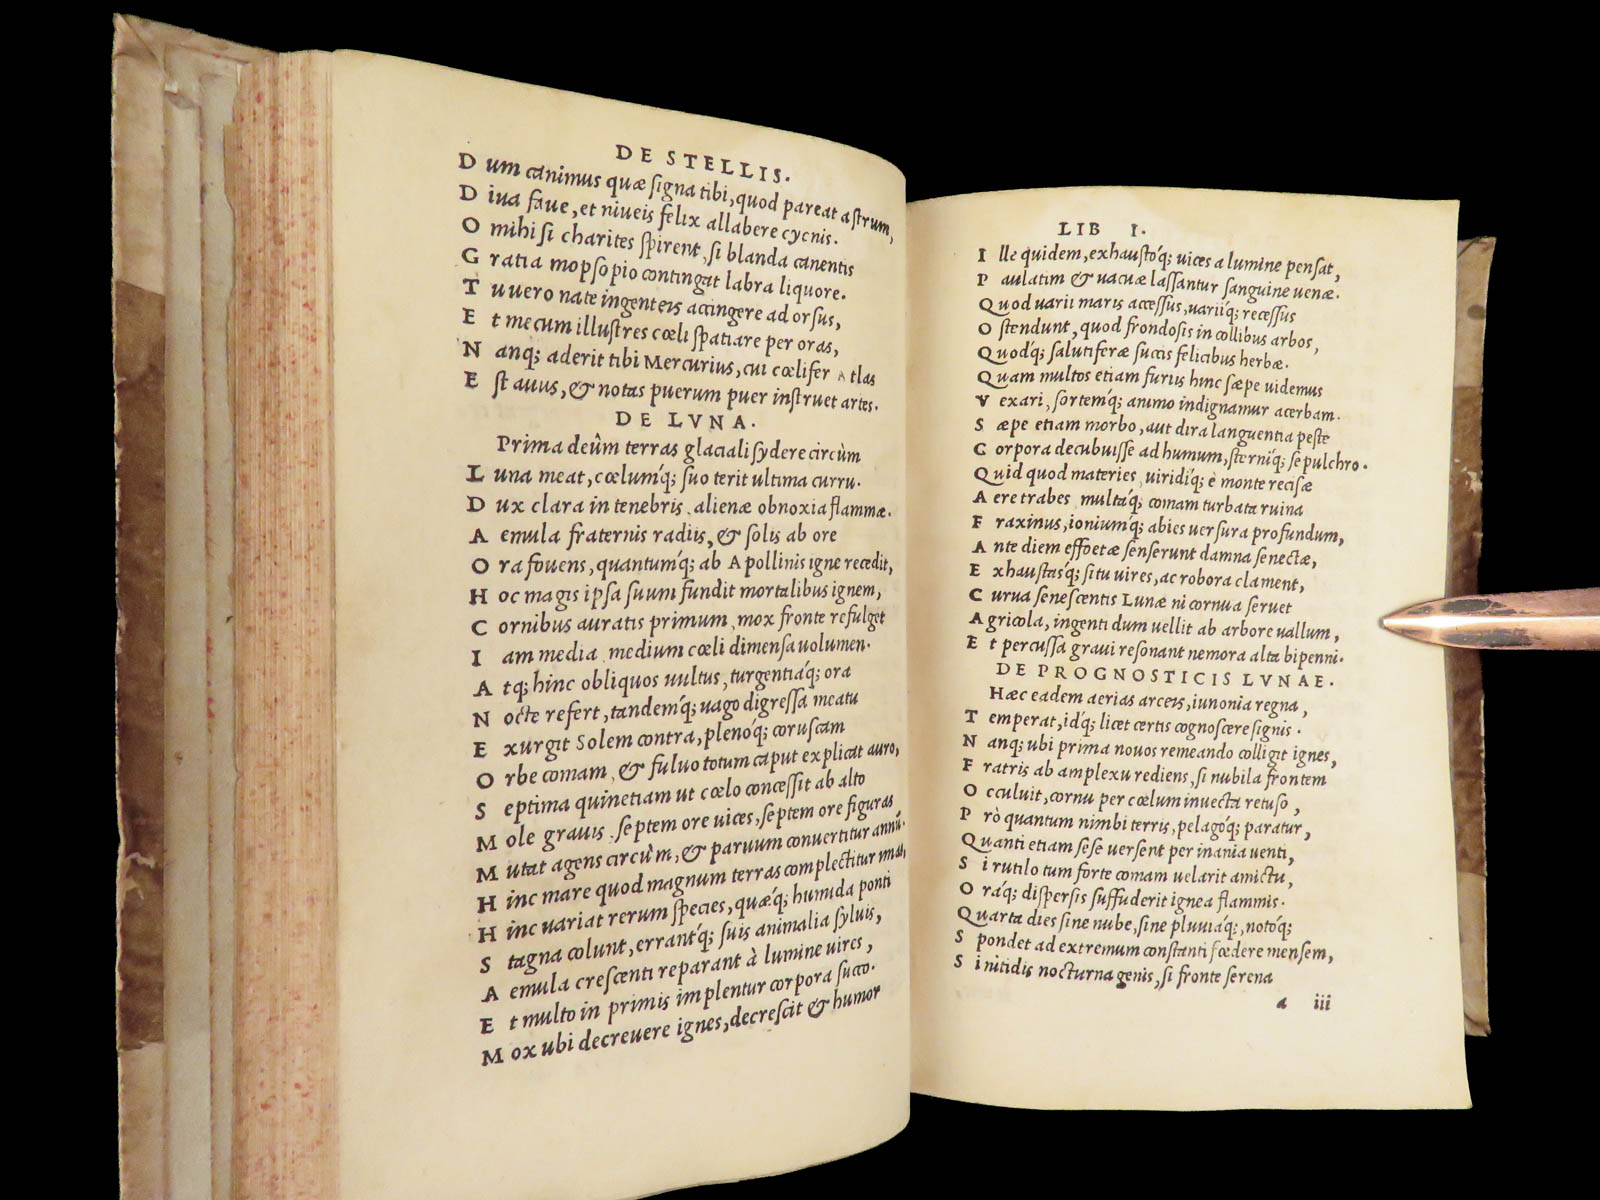 DE STELLIS.
D um canimus quæ ſigna tibi, quod pareat aſtrum,
D iua faue, et niueis felix allabere cycnis.
O mihi ſi charites ſpirent, ſi blanda canentis
G ratia mopſopio contingat labra liquore.
T u uero nate ingenteis accingere ad orſus,
E t mecum illuſtres cœli ſpatiare per oras,
N anq; aderit tibi Mercurius, cui cœlifer Atlas
E ſt auus, & notas puerum puer inſtruet artes.
DE LVNA.
Prima deûm terras glaciali ſydere circùm
L una meat, cœlumq́; ſuo terit ultima curru.
D ux clara in tenebris, alienæ obnoxia flammæ.
A emula fraternis radiis, & ſolis ab ore
O ra fouens, quantumq́; ab Apollinis igne recedit,
H oc magis ipſa ſuum fundit mortalibus ignem,
C ornibus auratis primum, mox fronte refulget
I am media, medium cœli dimenſa uolumen.
A tq; hinc obliquos uultus, turgentiaq́; ora
N octe refert, tandemq́; uago digreſſa meatu
E xurgit Solem contra, plenoq́; coruſcam
O rbe comam, & fuluo totum caput explicat auro,
S eptima quinetiam ut cœlo conceſſit ab alto
M ole grauis, ſeptem ore uices, ſeptem ore figuras
M utat agens circùm, & paruum conuertitur annũ.
H inc mare quod magnum terras complectitur imas,
H inc variat rerum ſpecies, quæq́; humida ponti
S tagna colunt, errantq́; ſuis animalia ſyluis,
A emula creſcenti reparant à lumine uires,
E t multo in primis implentur corpora ſucco.
M ox ubi decreuere ignes, decreſcit & humor
LIB I.
I lle quidem, exhauſtoq́; uices a lumine penſat,
P aulatim & vacuæ laſſantur ſanguine uenæ.
Quod varii maris acceſſus, variiq́; receſſus
O ſtendunt, quod frondoſis in collibus arbos,
Quodq́; ſalutiferæ ſuccis felicibus herbæ.
Quam multos etiam furiis hinc ſæpe uidemus
V exari, ſortemq́; animo indignamur acerbam.
S æpe etiam morbo, aut dira languentia peſte
C orpora decubuiſſe ad humum, ſterniq́; ſepulchro.
Quid quod materies, uiridiq́; è monte reciſæ
A ere trabes, multaq́; comam turbata ruina
F raxinus, ioniumq́; abies uerſura profundum,
A nte diem effoetæ senſerunt damna ſenectæ,
E xhauſtasq́; ſitu uires, ac robora clament,
C urua ſeneſcentis Lunæ ni cornua ſeruet
A gricola, ingenti dum uellit ab arbore uallum,
E t percuſſa graui reſonant nemora alta bipenni.
DE PROGNOSTICIS LVNAE.
Hæc eadem aerias arceis, iunonia regna,
T emperat, idq́; licet certis cognoſcere ſignis.
N anq; ubi prima nouos remeando colligit ignes,
F ratris ab amplexu rediens, ſi nubila frontem
O cculuit, cornu per cœlum inuecta retuſo,
P rò quantum nimbi terris, pelagoq́; paratur,
Quanti etiam ſeſe uerſent per inania uenti,
S i rutilo tum forte comam uelarit amictu,
O raq́; diſperſis ſuffuderit ignea flammis.
Quarta dies ſine nube, ſine pluuiaq́;, notoq́;
S pondet ad extremum conſtanti fœdere menſem,
S i nitidis nocturna genis, ſi fronte ſerena
a iii